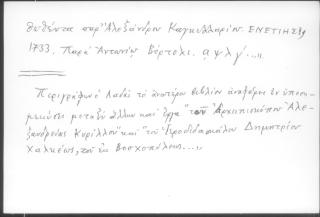 θυθέντα παρ' Ἀλεξάνδρου Καγκελλαρίου. ΕΝΕΤΙΗΣΙ
1733. Παρὰ Ἀντωνίῳ Βόρτολι. αψλγ´...."
Περιγράφων ὁ Λαδᾶς τὸ ἀνωτέρω βιβλίον ἀναφέρει ἐν ὑποση-
μειώσει μεταξὺ ἄλλων καὶ ἔργα "τοῦ Ἀρχιεπισκόπου Ἀλε-
ξανδρείας Κυρίλλου" καὶ "τοῦ Ἱεροδιδασκάλου Δημητρίου
Χαλκέως, τοῦ ἐκ Βοσχοπόλεως...."